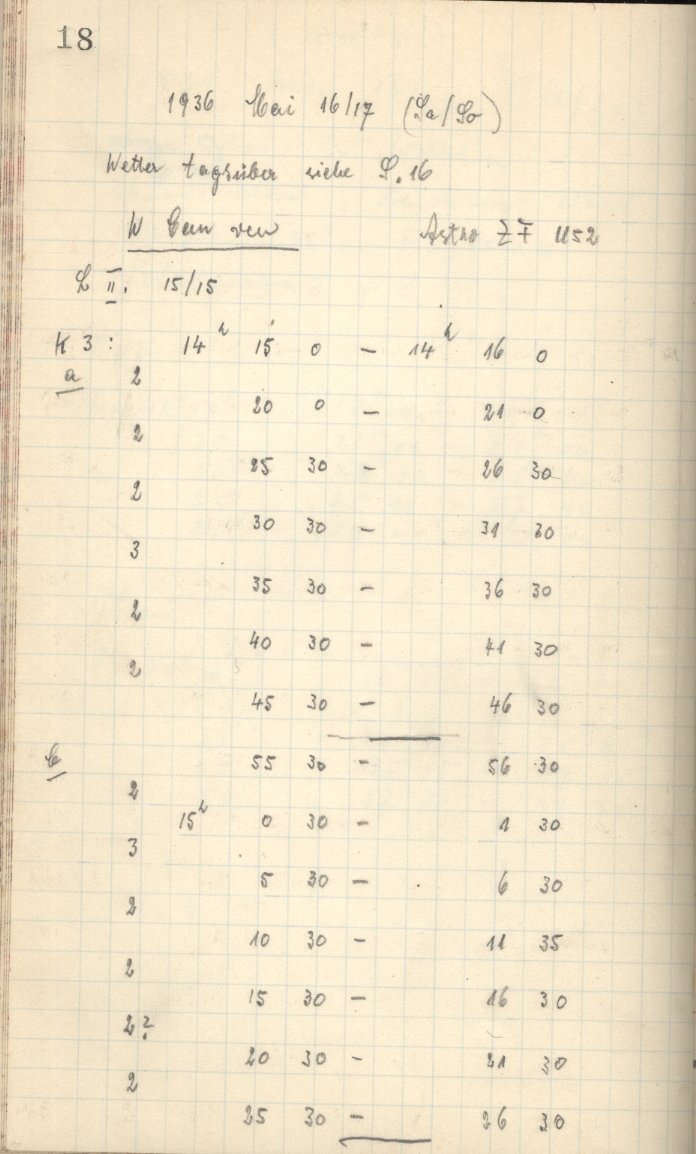 18
1936 Mai 16/17 (Sa/So)
Wetter tagsüber siehe S. 16
W Cam ven
Astro ZF 1152
L II. 15/15
K 3: 14h 15 0 – 14h 16 0
a
2
20 0 – 21 0
2
25 30 – 26 30
2
30 30 – 31 30
3
35 30 – 36 30
2
40 30 – 41 30
2
45 30 – 46 30
b
55 30 – 56 30
2
15h 0 30 – 1 30
3
5 30 – 6 30
2
10 30 – 11 35
2
15 30 – 16 30
2?
20 30 – 21 30
2
25 30 – 26 30